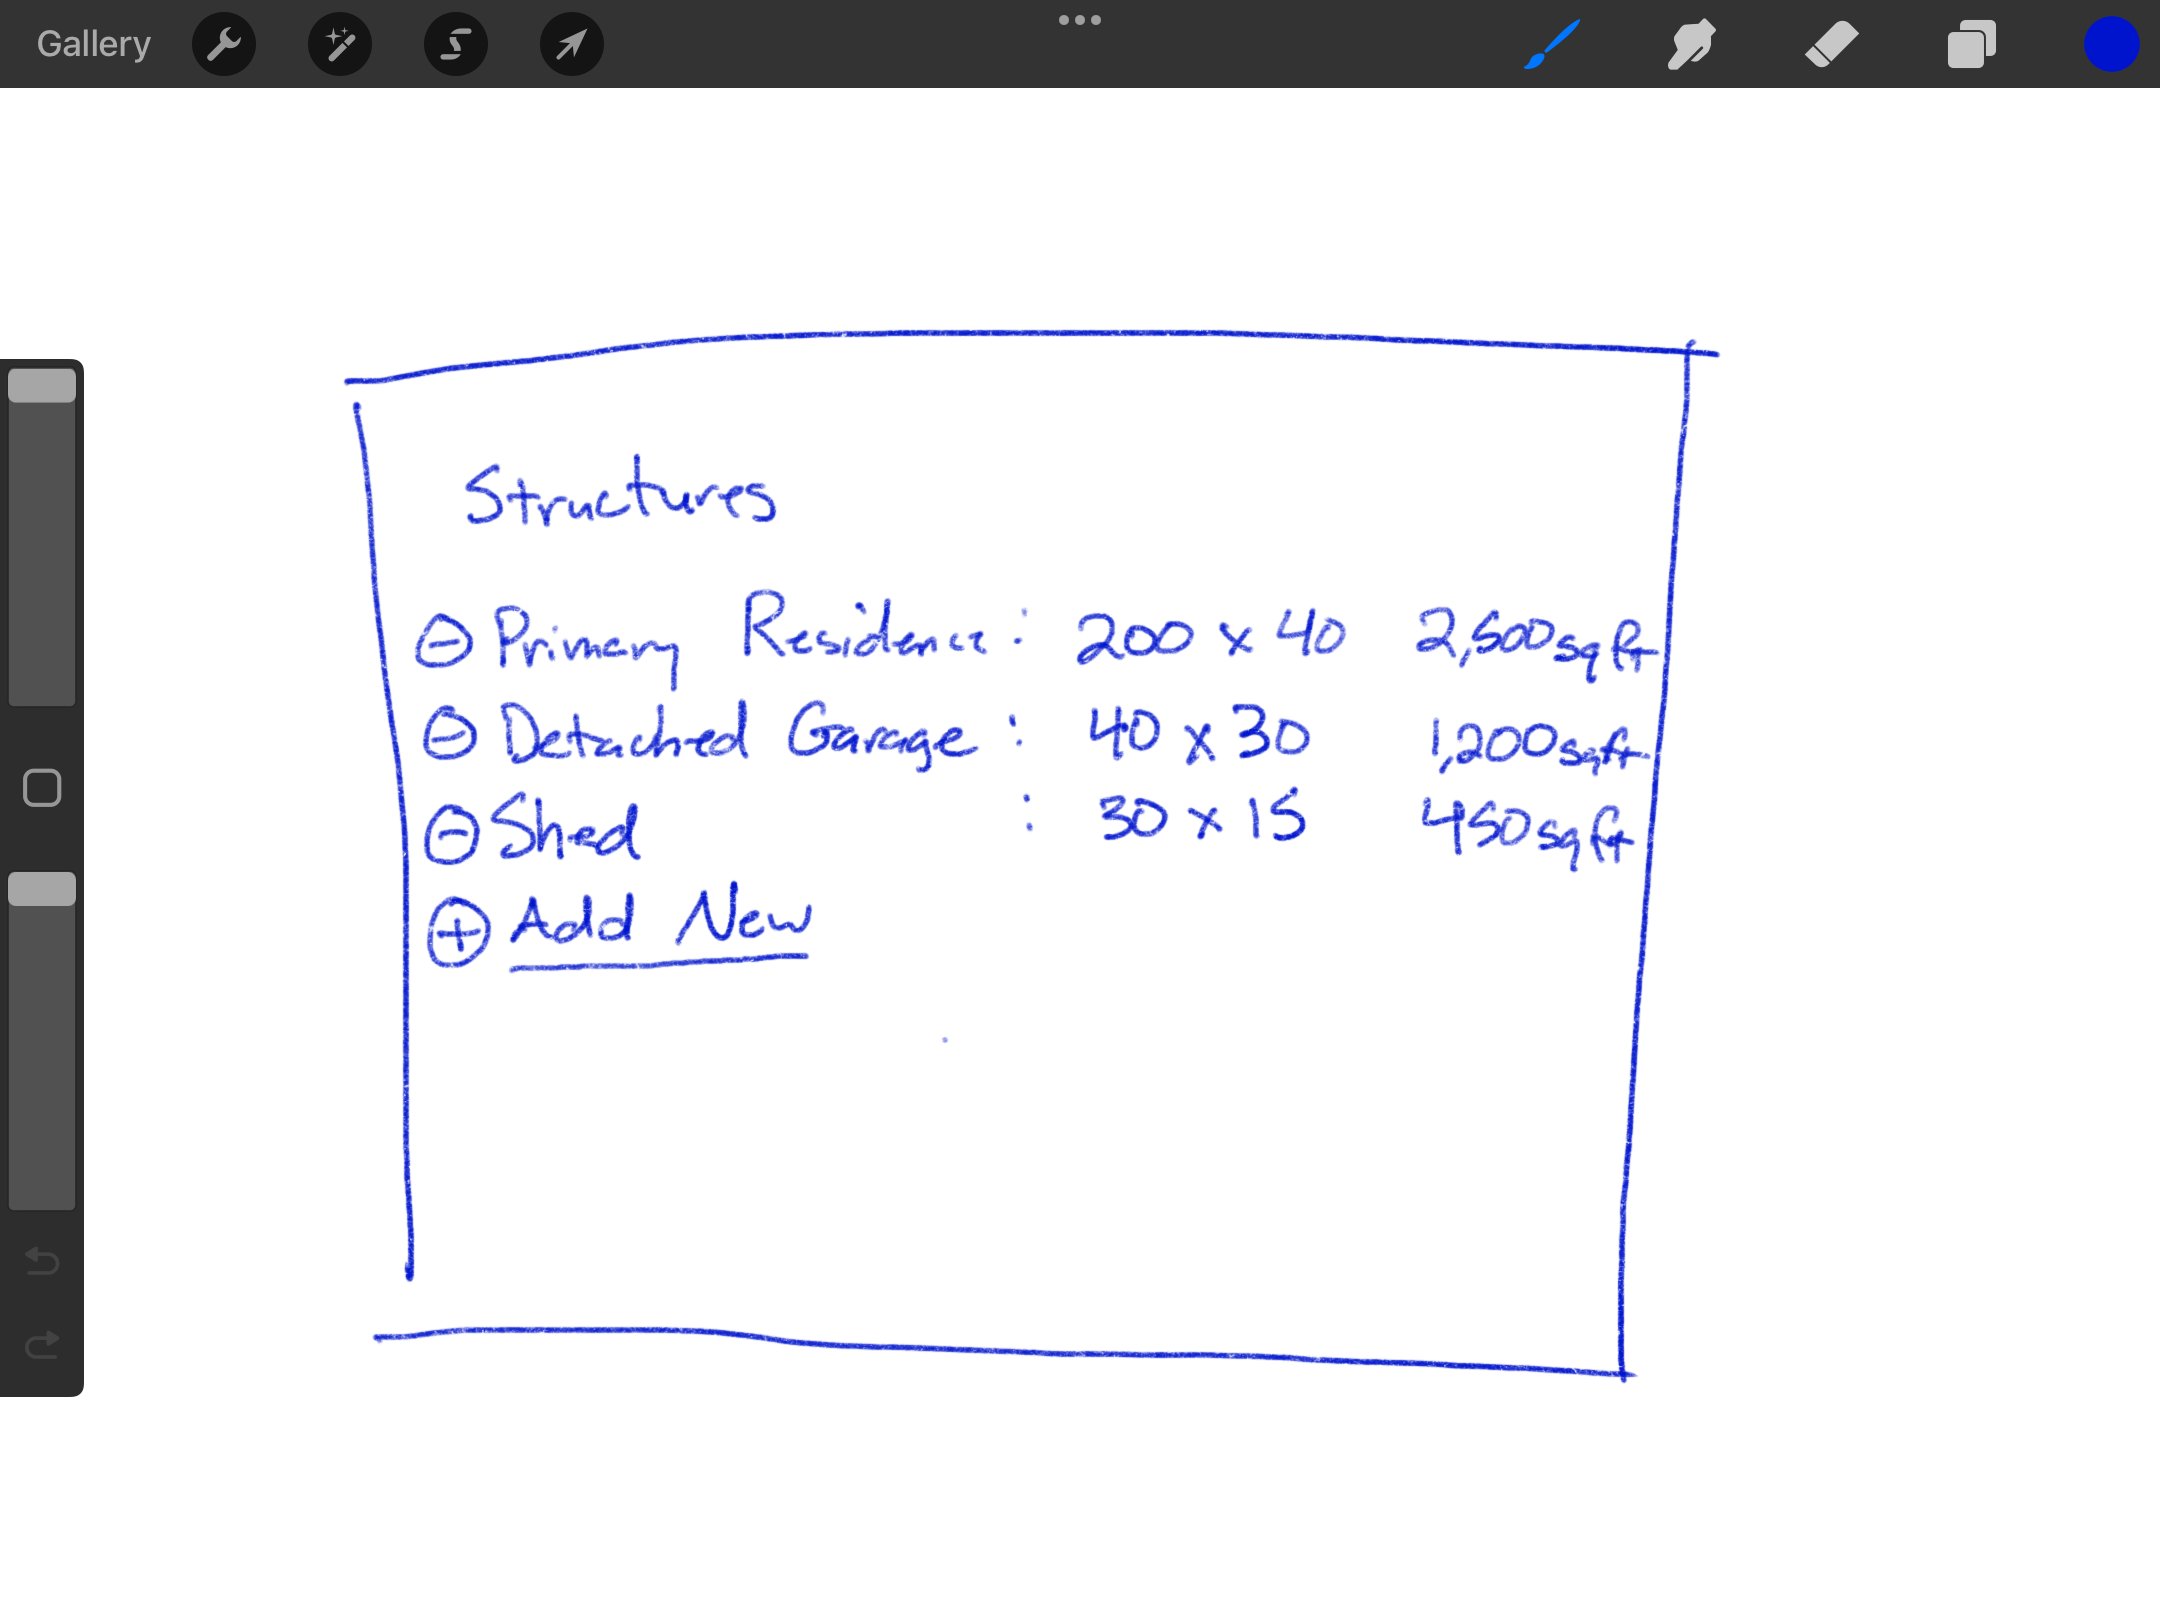 Gallery
Structures
Primary Residence : 200 x 40 2,500 sq ft
Detached Garage : 40 x 30 1,200 sq ft
Shed : 30 x 15 450 sq ft
Add New